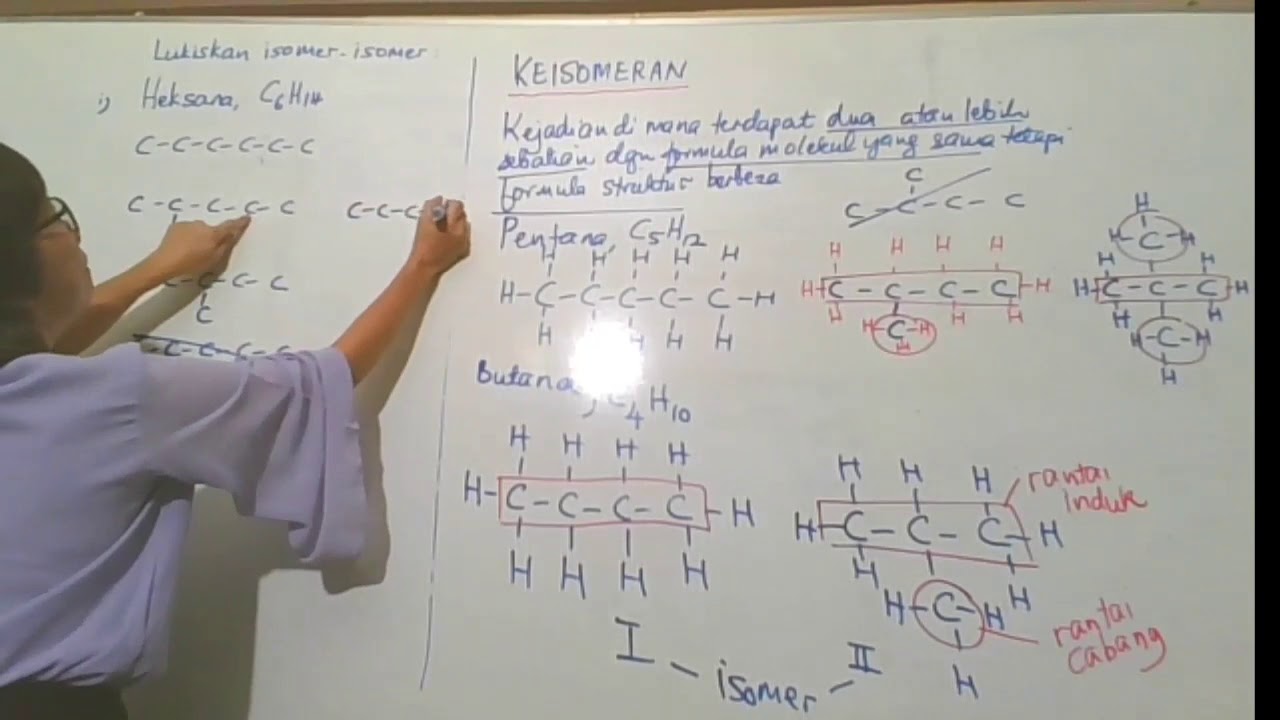 Lukiskan isomer-isomer:
i) Heksana, C6H14
C-C-C-C-C-C
C-C-C-C-C
C-C-C
C-C-C
C
C-C-C-C
KEISOMERAN
Kejadian di mana terdapat dua atau lebih
sebatian dgn formula molekul yang sama tetapi
formula struktur berbeza
Pentana, C5H12
H H H H H
H-C-C-C-C-C-H
H H H H
C
C-C-C-C
H H H H
H-C-C-C-C-H
H H H
H-C-H
H
H
H-C-H
H H
H-C-C-C-H
H H
H-C-H
H
Butana, C4H10
H H H H
H-C-C-C-C-H
H H H H
I
H H H
H-C-C-C-H
H H
H-C-H
H
II
rantai
induk
rantai
cabang
I - isomer - II